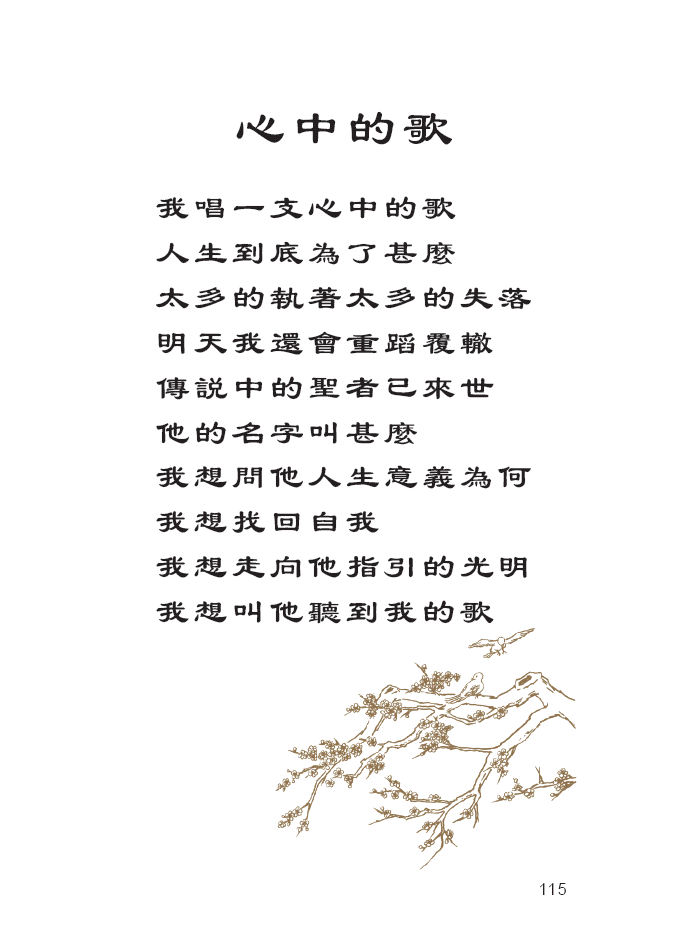 心中的歌
我唱一支心中的歌
人生到底為了甚麼
太多的執著太多的失落
明天我還會重蹈覆轍
傳説中的聖者已來世
他的名字叫甚麼
我想問他人生意義為何
我想找回自我
我想走向他指引的光明
我想叫他聽到我的歌
115